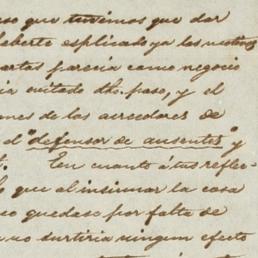 so que tuvimos que dar
haberte esplicado ya los motivos
cartas parecia como negocio
ria evitado dho. paso, y el
ones de los acreedores de
el "defensor de ausentes" y
. En cuanto á tus refle-
lo que al insinuar la cosa
so quedase por falta de
no surtiria ningun efecto